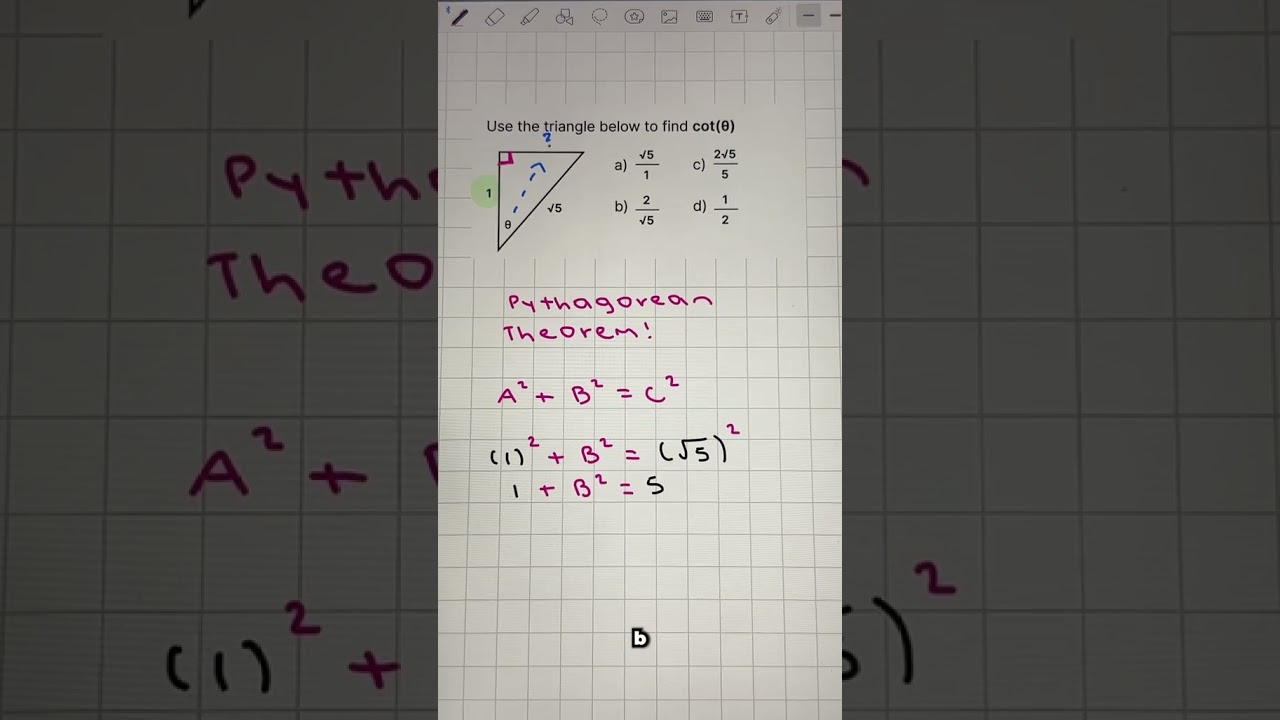 Use the triangle below to find cot(θ)
?
1
√5
θ
a) √5/1 c) 2√5/5
b) 2/√5 d) 1/2
Pythagorean
Theorem!
A² + B² = C²
(1)² + B² = (√5)²
1 + B² = 5
b
Pyth
Theo
A² +
(1)² +
)²